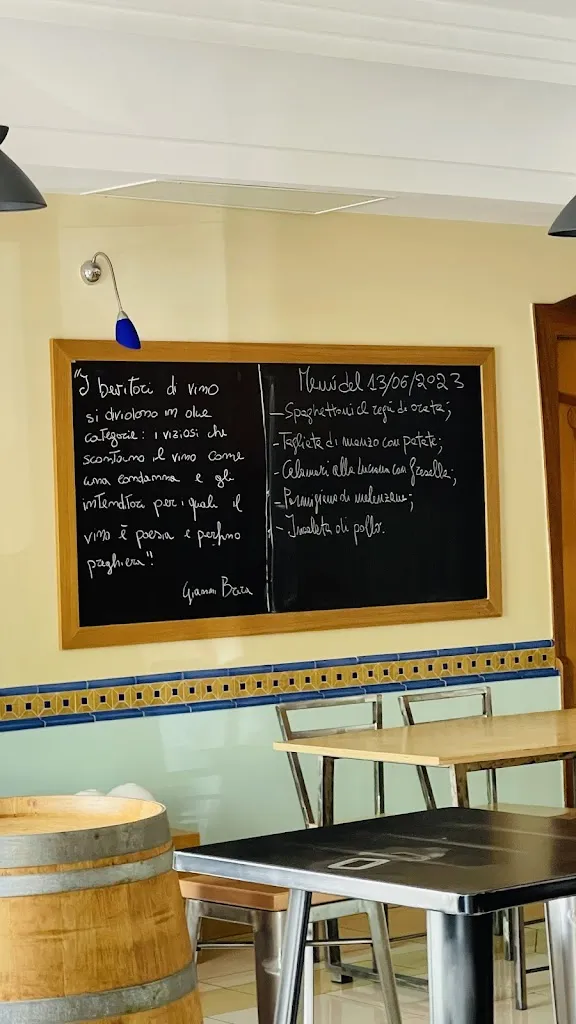 "I bevitori di vino
si dividono in due
categorie: i viziosi che
scontano il vino come
una condanna e gli
intenditori per i quali il
vino è poesia e perfino
preghiera"!
Gianni Brera
Menù del 13/06/2023
- Spaghettoni al ragù di orata;
- Tagliata di manzo con patate;
- Calamari alla luciana con freselle;
- Parmigiana di melenzane;
- Insalata di pollo.